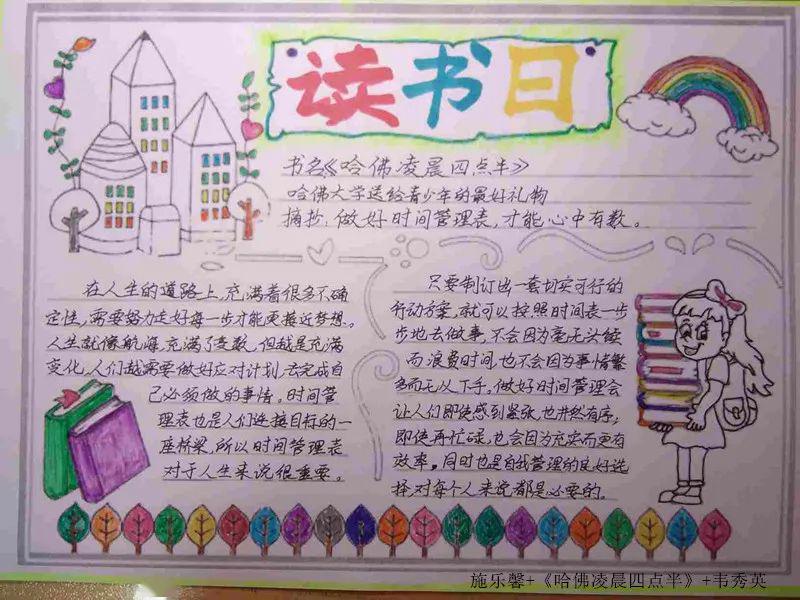 读书日
书名《哈佛凌晨四点半》
哈佛大学送给青少年的最好礼物
摘抄:做好时间管理表,才能心中有数。
在人生的道路上,充满着很多不确
定性,需要努力走好每一步才能更接近梦想。
人生就像航海,充满了变数,但越是充满
变化,人们越需要做好应对计划,去完成自
己必须做的事情。时间管
理表也是人们连接目标的一
座桥梁,所以时间管理表
对于人生来说很重要。
只要制订出一套切实可行的
行动方案,就可以按照时间表一步
步地去做事,不会因为毫无头绪
而浪费时间,也不会因为事情繁
多而无从下手。做好时间管理会
让人们即使感到紧张,也井然有序,
即使再忙碌,也会因为充实而更有
效率。同时也是自我管理的良好选
择,对每个人来说都是必要的。
施乐馨+《哈佛凌晨四点半》+韦秀英